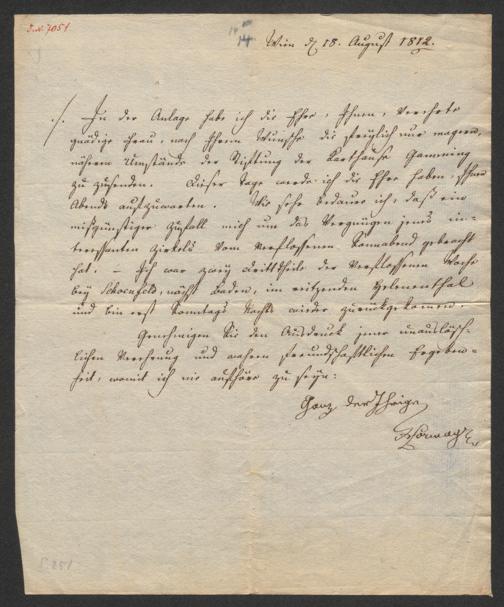 I.N. 7051
14
Wien d. 18. August 1812.
./. In der Anlage habe ich die Ehre, Ihnen, Verehrte
gnädige Frau, nach Ihrem Wunsche die freylich nur magern,
nähern Umstände der Stiftung der Karthause Gamming
zu zusenden. Dieser Tage werde ich die Ehre haben, Ihnen
Abends aufzuwarten. Wie sehr bedaure ich, daß ein
mißgünstiger Zufall mich um das Vergnügen jenes in-
teressanten Zirkels vom verflossenen Sonnabend gebracht
hat. – Ich war zwey Drittheile der verflossenen Woche
bey Schoenfeld, nächst Baden, im reitzenden Helenenthal
und bin erst Sonntags Nachts wieder zurückgekommen.
Genehmigen Sie den Ausdruck jener unauslösch-
lichen Verehrung und wahren freundschaftlichen Ergeben-
heit, womit ich nie aufhöre zu seyn:
Ganz der Ihrige
Hormayr